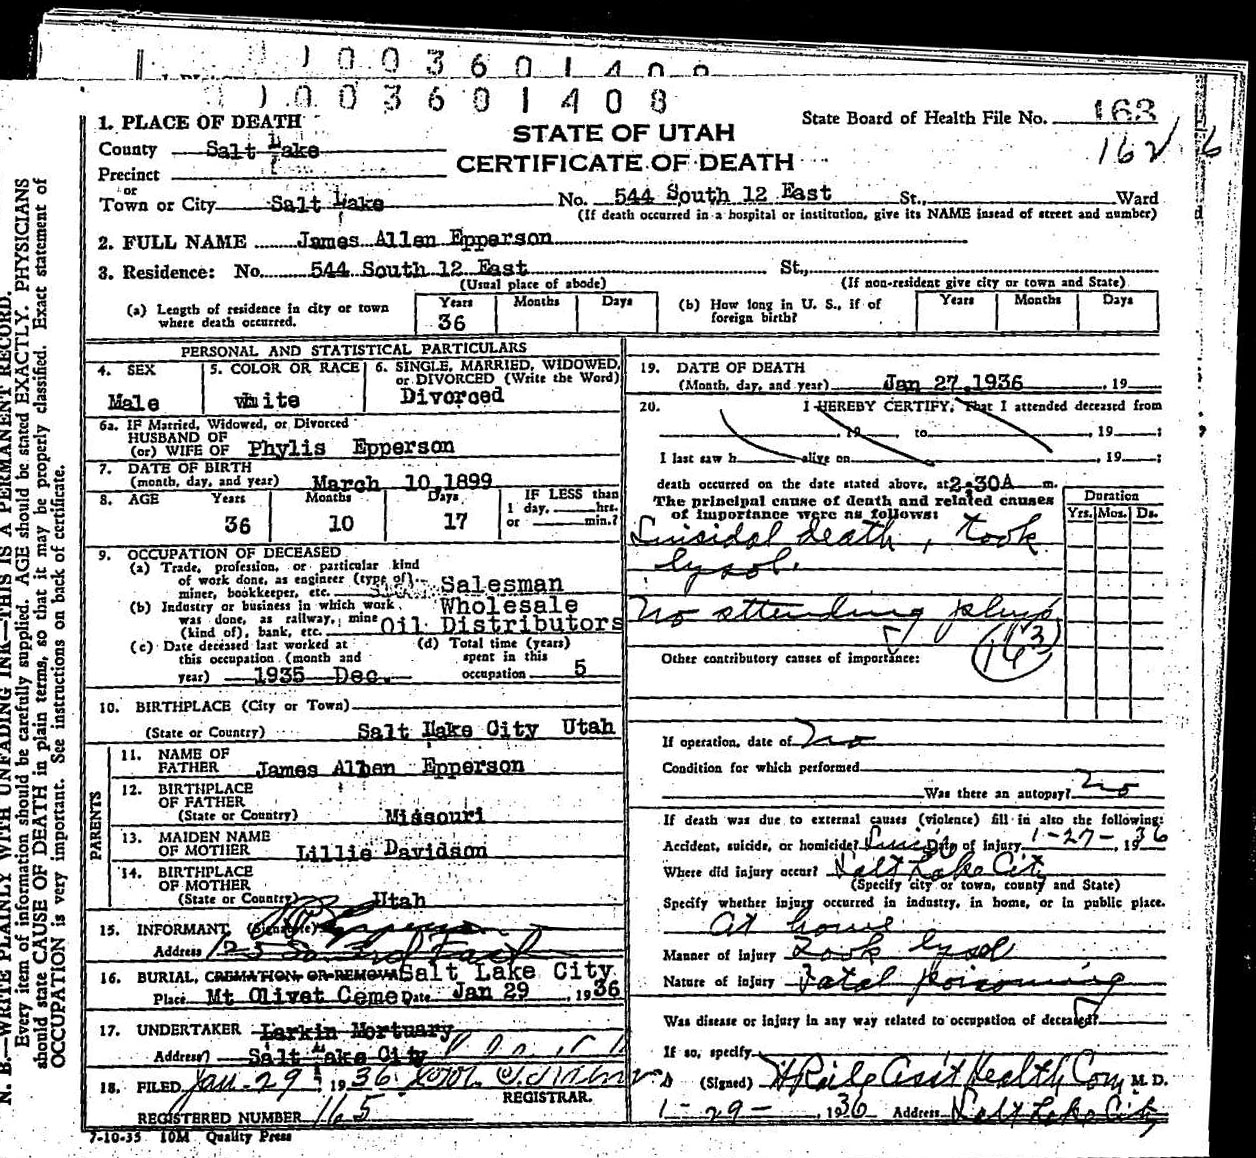 1003601408
1003601408
1. PLACE OF DEATH
STATE OF UTAH
CERTIFICATE OF DEATH
State Board of Health File No. 163
162
6
County Salt Lake
Precinct
or
Town or City Salt Lake No. 544 South 12 East St., Ward
(If death occurred in a hospital or institution, give its NAME insead of street and number)
2. FULL NAME James Allen Epperson
3. Residence: No. 544 South 12 East St.,
(Usual place of abode) (If non-resident give city or town and State)
(a) Length of residence in city or town where death occurred. Years 36 Months Days
(b) How long in U. S., if of foreign birth? Years Months Days
PERSONAL AND STATISTICAL PARTICULARS
4. SEX Male
5. COLOR OR RACE White
6. SINGLE, MARRIED, WIDOWED, or DIVORCED (Write the Word) Divorced
6a. IF Married, Widowed, or Divorced
HUSBAND OF
(or) WIFE OF Phylis Epperson
7. DATE OF BIRTH
(month, day, and year) March 10,1899
8. AGE Years 36 Months 10 Days 17 IF LESS than 1 day, hrs. or min.?
9. OCCUPATION OF DECEASED
(a) Trade, profession, or particular kind
of work done, as engineer (type of)
miner, bookkeeper, etc. Salesman
(b) Industry or business in which work
was done, as railway, mine
(kind of), bank, etc. Wholesale Oil Distributors
(c) Date deceased last worked at
this occupation (month and
year) 1935 Dec.
(d) Total time (years)
spent in this
occupation 5
10. BIRTHPLACE (City or Town)
(State or Country) Salt Lake City Utah
PARENTS
11. NAME OF
FATHER James Allen Epperson
12. BIRTHPLACE
OF FATHER
(State or Country) Missouri
13. MAIDEN NAME
OF MOTHER Lillie Davidson
14. BIRTHPLACE
OF MOTHER
(State or Country) Utah
15. INFORMANT (Signature) Epperson
Address
16. BURIAL, CREMATION OR REMOVAL Salt Lake City
Place Mt Olivet Ceme Date Jan 29 , 1936
17. UNDERTAKER Larkin Mortuary
Address Salt Lake City
18. FILED Jan. 29 1936
REGISTRAR.
REGISTERED NUMBER 165
7-10-35 10M Quality Press
19. DATE OF DEATH
(Month, day, and year) Jan 27,1936 , 19
20. I HEREBY CERTIFY, That I attended deceased from
, 19 , to , 19 ;
I last saw h alive on , 19 ;
death occurred on the date stated above, at 2:30A m.
The principal cause of death and related causes
of importance were as follows:
Duration
Yrs. Mos. Ds.
Suicidal death, took
lysol.
No attending phys
163
Other contributory causes of importance:
If operation, date of No
Condition for which performed
Was there an autopsy? No
If death was due to external causes (violence) fill in also the following:
Accident, suicide, or homicide? Suicide Date of injury 1-27-, 1936
Where did injury occur? Salt Lake City
(Specify city or town, county and State)
Specify whether injury occurred in industry, in home, or in public place.
At home
Manner of injury Took lysol
Nature of injury Fatal poisoning
Was disease or injury in any way related to occupation of deceased?
If so, specify
(Signed) Asst Health Com M. D.
1-29-, 1936 Address Salt Lake City
N. B.—WRITE PLAINLY WITH UNFADING INK—THIS IS A PERMANENT RECORD.
Every item of information should be carefully supplied. AGE should be stated EXACTLY. PHYSICIANS
should state CAUSE OF DEATH in plain terms, so that it may be properly classified. Exact statement of
OCCUPATION is very important. See instructions on back of certificate.